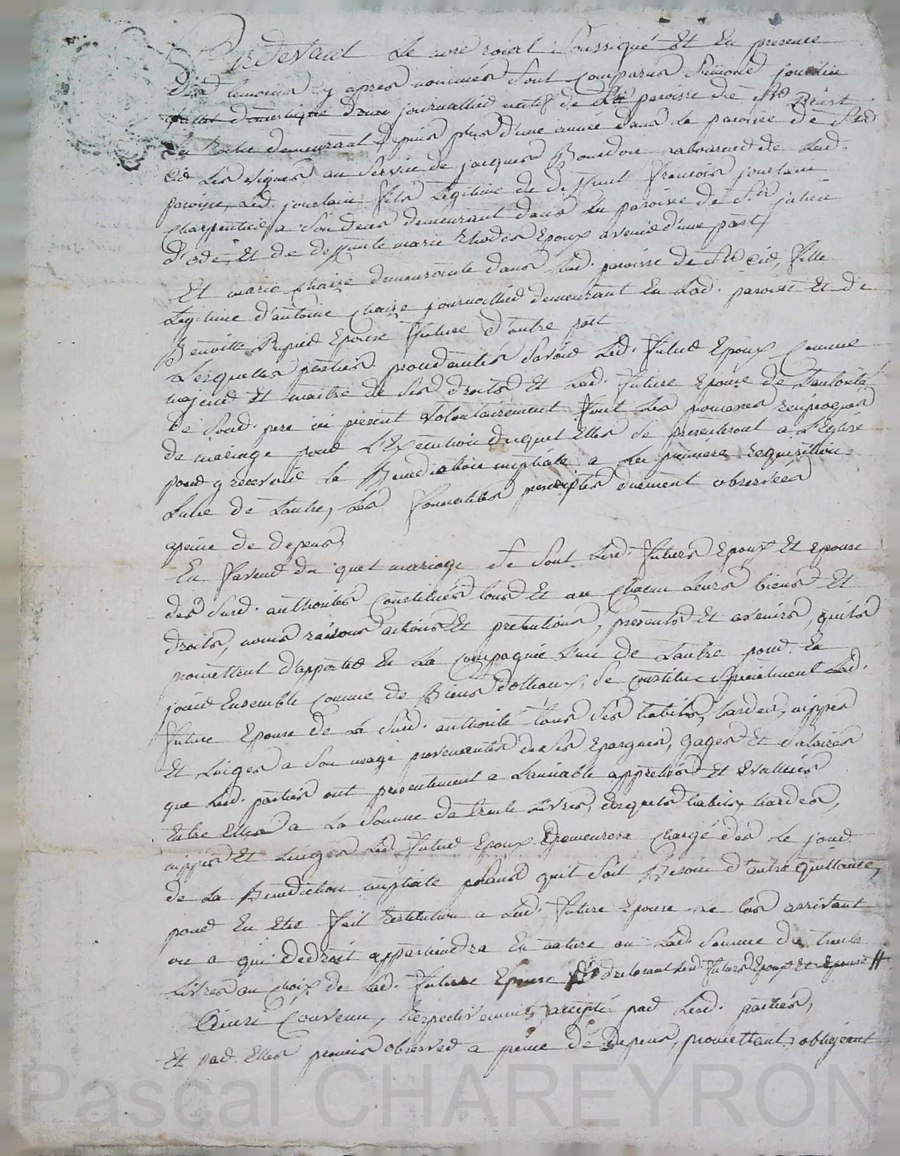 Pardevant Le no.re royal Soussigné Et En presence
Des temoins y apres nommés Sont Comparus Simond jourdain
journallier natif de La paroisse de St Priest
La Roche demeurant Depuis plus d'une année dans la paroisse de St
Cid Les vignes au Service de jacques Bourdon Laboureur de Lad.
paroisse, Led. jourdain fils Légitime de Deffunt François jourdain
charpentier a Son deces demeurant dans La paroisse de St julien
d'odes, Et de deffunte marie Epoux avenir d'une part,
Et marie chaize demeurante dans Lad. paroisse de St Cid, fille
Légitime d'antoine Chaize journallier demeurant En Lad. paroisse Et de
Benoitte Epouse future d'autre part
Lesquelles parties procedantes Savoir Led. futur Epoux Comme
majeur Et maitre de Ses droits Et Lad. future Epouse de L'autorité
de Sond. pere ici present volontairement Font Les promesses reciproques
de mariage pour L'Execution duquel Elles Se presenteront a L'Eglise
pour y recevoir La Benediction nuptiale a La premiere requisition
Lune de Lautre, Les formalités prescriptes duement observées
apeine de depens
En faveur du quel mariage Se Sont Lesd. futurs Epoux Et Epouse
des Susd. authorités Constitués tous Et un Chacun Leurs biens Et
droits, noms raisons actions Et pretentions, presents Et avenirs, quils
promettent d'apporter En La Compagnie L'un de Lautre pour En
jouir Ensemble Comme de Biens dottaux, Se Constitue Specialement Lad.
future Epouse de La Susd. authorité tous Ses habits, hardes, nippes
Et Linges a Son usage provenantes de Ses Epargnes, gages Et Salaires
que Lesd. parties ont presentement a Lamiable appreties Et Evalués
Entre Elles a La Somme de trente Livres, desquels habits, hardes,
nippes Et Linges Led. futur Epoux Demeurera Chargé des Le jour
de La Benediction nuptiale Sans quil Soit Besoin d'autre quittance,
pour En Etre fait restitution a Lad. future Epouse Le Cas arrivant
ou a qui de droit appartiendra En nature ou Lad. Somme de trente
Livres au choix de Lad. future Epouse declarant Lesd. futurs Epoux et Epouse #
Ainsi Convenu, Respectivement accepté par Lesd. parties,
Et par Elles promis observer a peine de Depens, promettant, obligeant
Pascal CHAREYRON